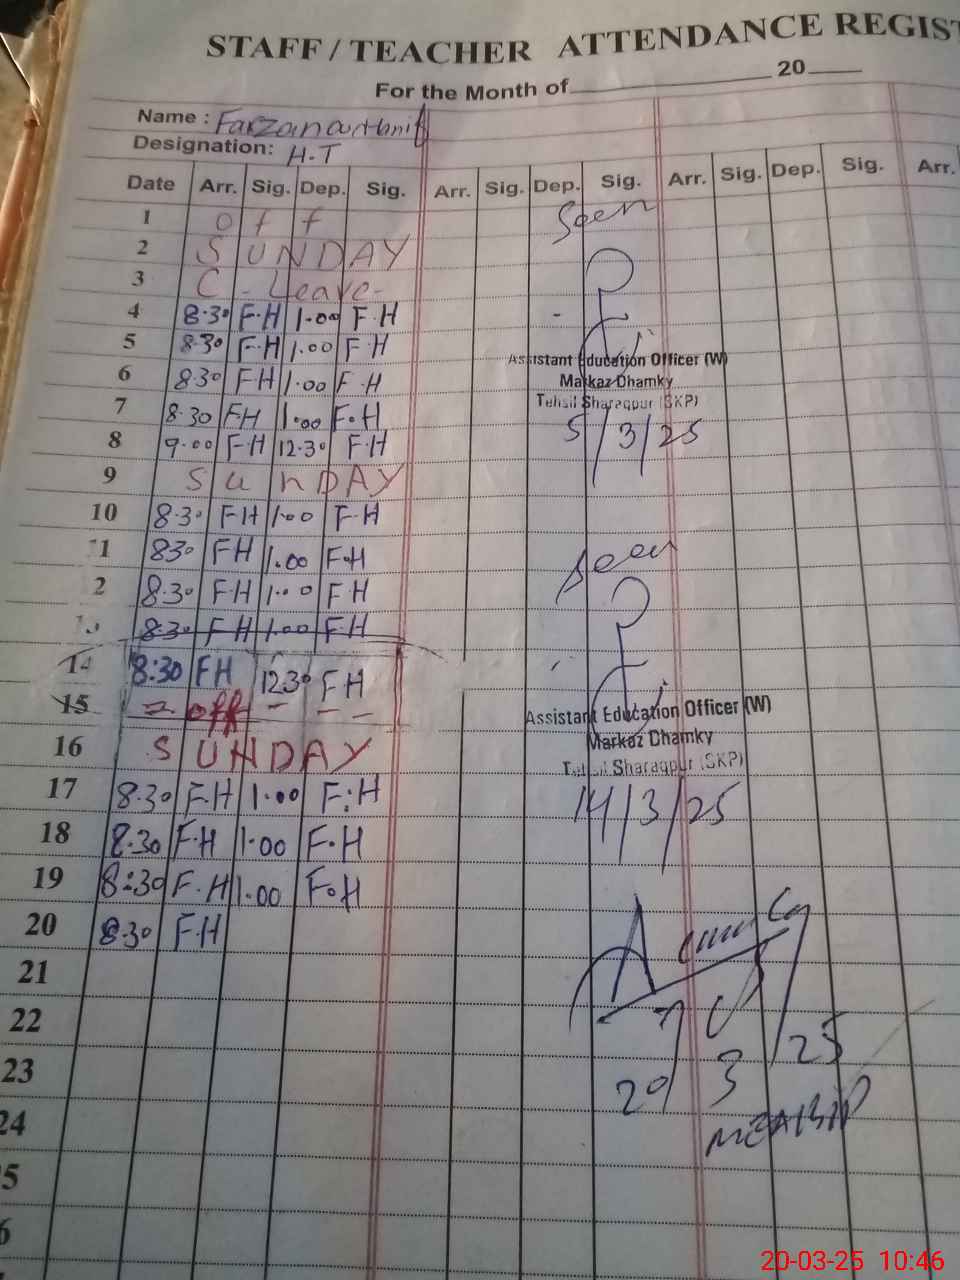 STAFF / TEACHER ATTENDANCE REGIST
For the Month of 20
Name : Farzana Hanif
Designation: H-T
Date Arr. Sig. Dep. Sig. Arr. Sig. Dep. Sig. Arr. Sig. Dep. Sig. Arr.
1 off Seen
2 SUNDAY
3 C-Leave-
4 8.30 F.H 1.00 F.H
5 8.30 F.H 1.00 F.H
Assistant Education Officer (W)
6 830 FH 1.00 F.H
Markaz Dhamky
Tehsil Sharaqpur (SKP)
7 8.30 FH 1.00 F.H
5/3/25
8 9.00 F.H 12.30 F.H
9 SunDAY
10 8.30 FH 1.00 F.H
11 830 FH 1.00 F.H Seen
2 8.30 F.H 1.00 F.H
8.30 FH 1.00 F.H
14 8:30 FH 12.30 F.H
15 = off - - -
Assistant Education Officer (W)
16 SUNDAY
Markaz Dhamky
Tehsil Sharaqpur (SKP)
17 8.30 F.H 1.00 F.H
14/3/25
18 8.30 F.H 1.00 F.H
19 8:30 F.H 1.00 F.H
20 8.30 F.H
21
22
23
3 25
24
5
6
20-03-25 10:46